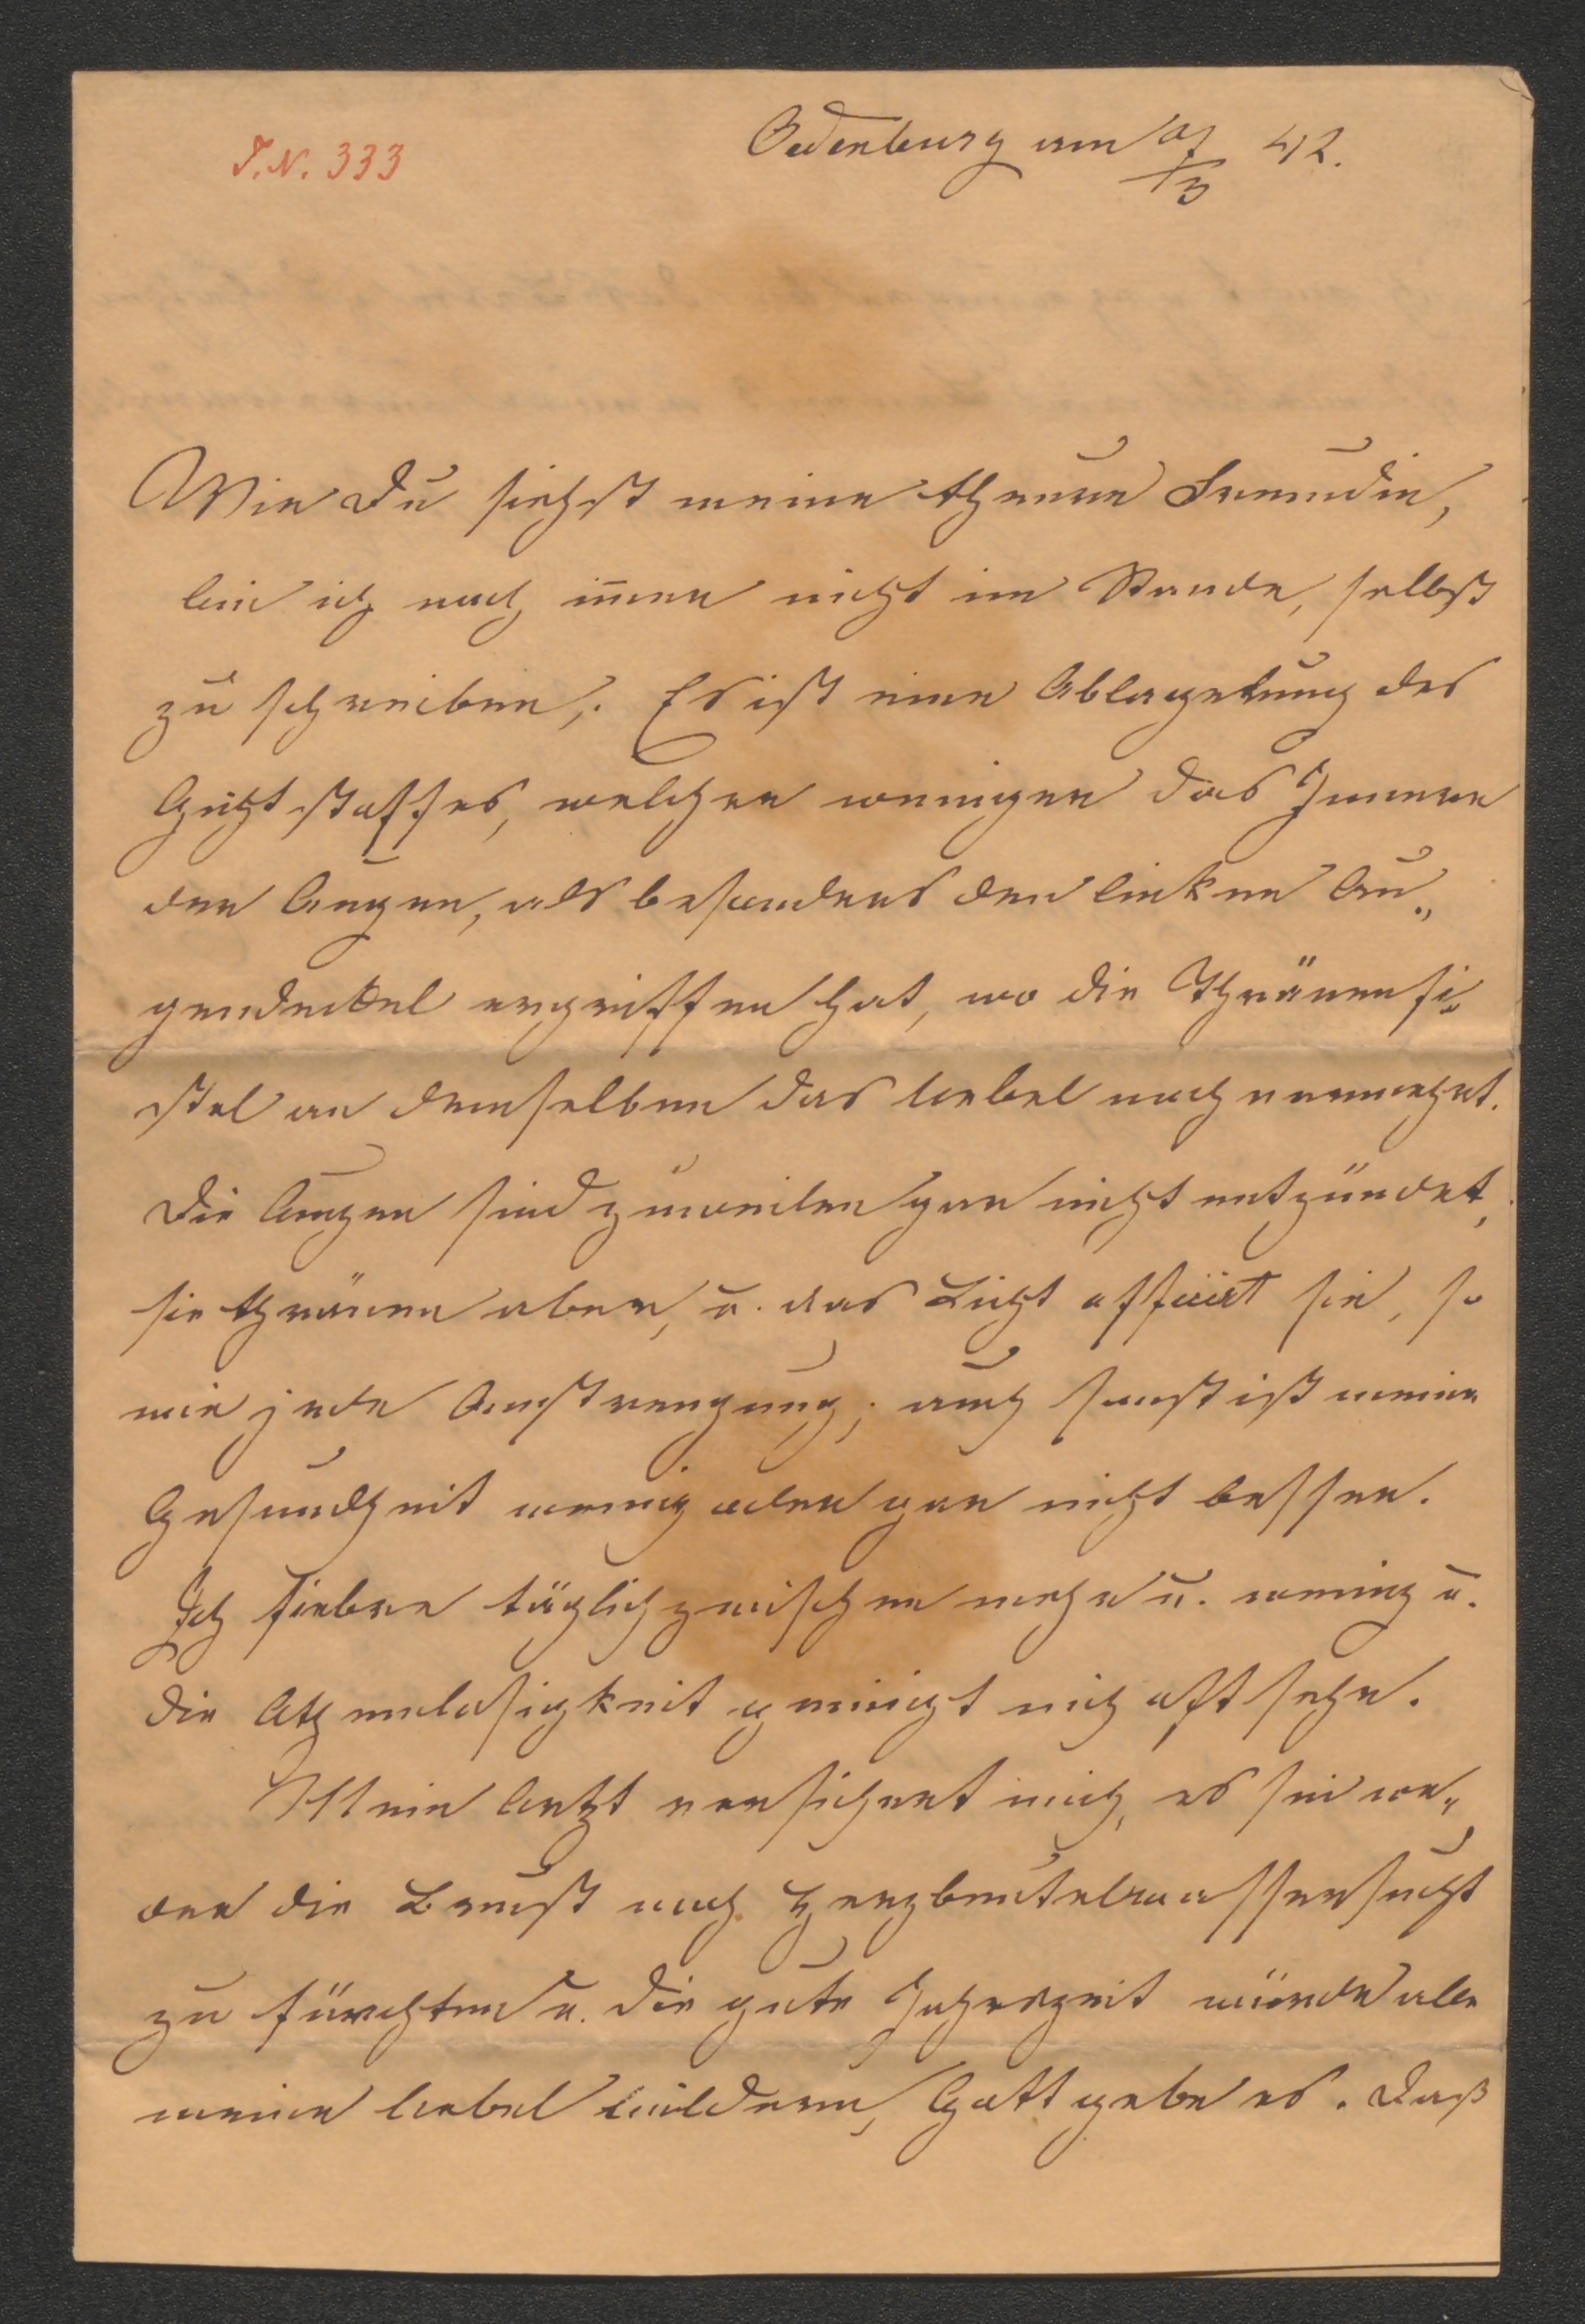 T.N. 333
Oedenburg am 9/3 42.
Wie Du siehst meine theure Freundin,
bin ich noch im̄er nicht im Stande, selbst
zu schreiben,. Es ist eine Ablagerung des
Gichtstoffes, welcher weniger das Innere
der Augen, als besonders den linken Au„
gendeckel ergriffen hat, wo die Thränenfi„
stel an demselben das Uebel noch vermehrt.
Die Augen sind zuweilen gar nicht entzündet,
sie thränen aber, u. das Licht afficirt sie, so
wie jede Anstrengung; auch sonst ist meine
Gesundheit wenig oder gar nicht besser.
Ich fiebere täglich zwischen mehr u. wenig u.
die Athemlosigkeit peinigt mich oft sehr.
Mein Arzt versichert mich, es sei we„
der die Brust noch Herzbeutelwassersucht
zu fürchten u. die gute Jahreszeit würde alle
meine Uebel mildern, Gott gebe es. Daß